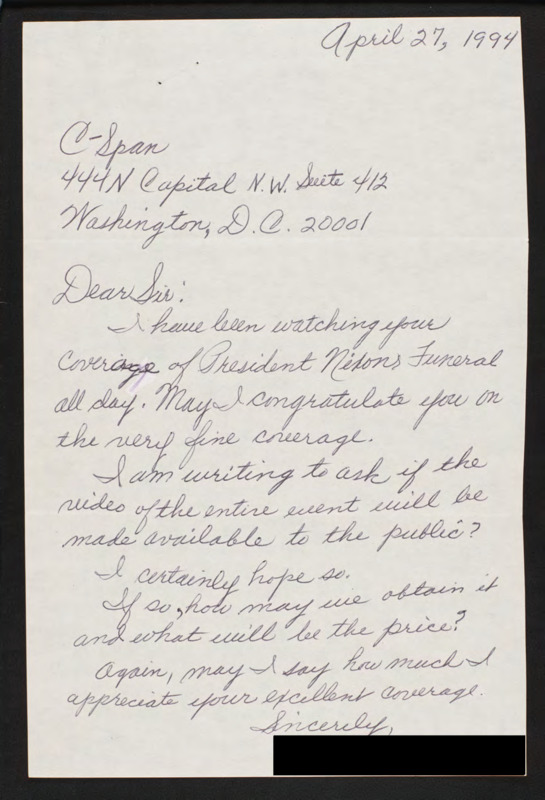 April 27, 1994
C-Span
444 N Capital N.W. Suite 412
Washington, D.C. 20001
Dear Sir:
I have been watching your
coverage of President Nixons Funeral
all day. May I congratulate you on
the very fine coverage.
I am writing to ask if the
video of the entire event will be
made available to the public?
I certainly hope so.
If so, how may we obtain it
and what will be the price?
Again, may I say how much I
appreciate your excellent coverage.
Sincerely,